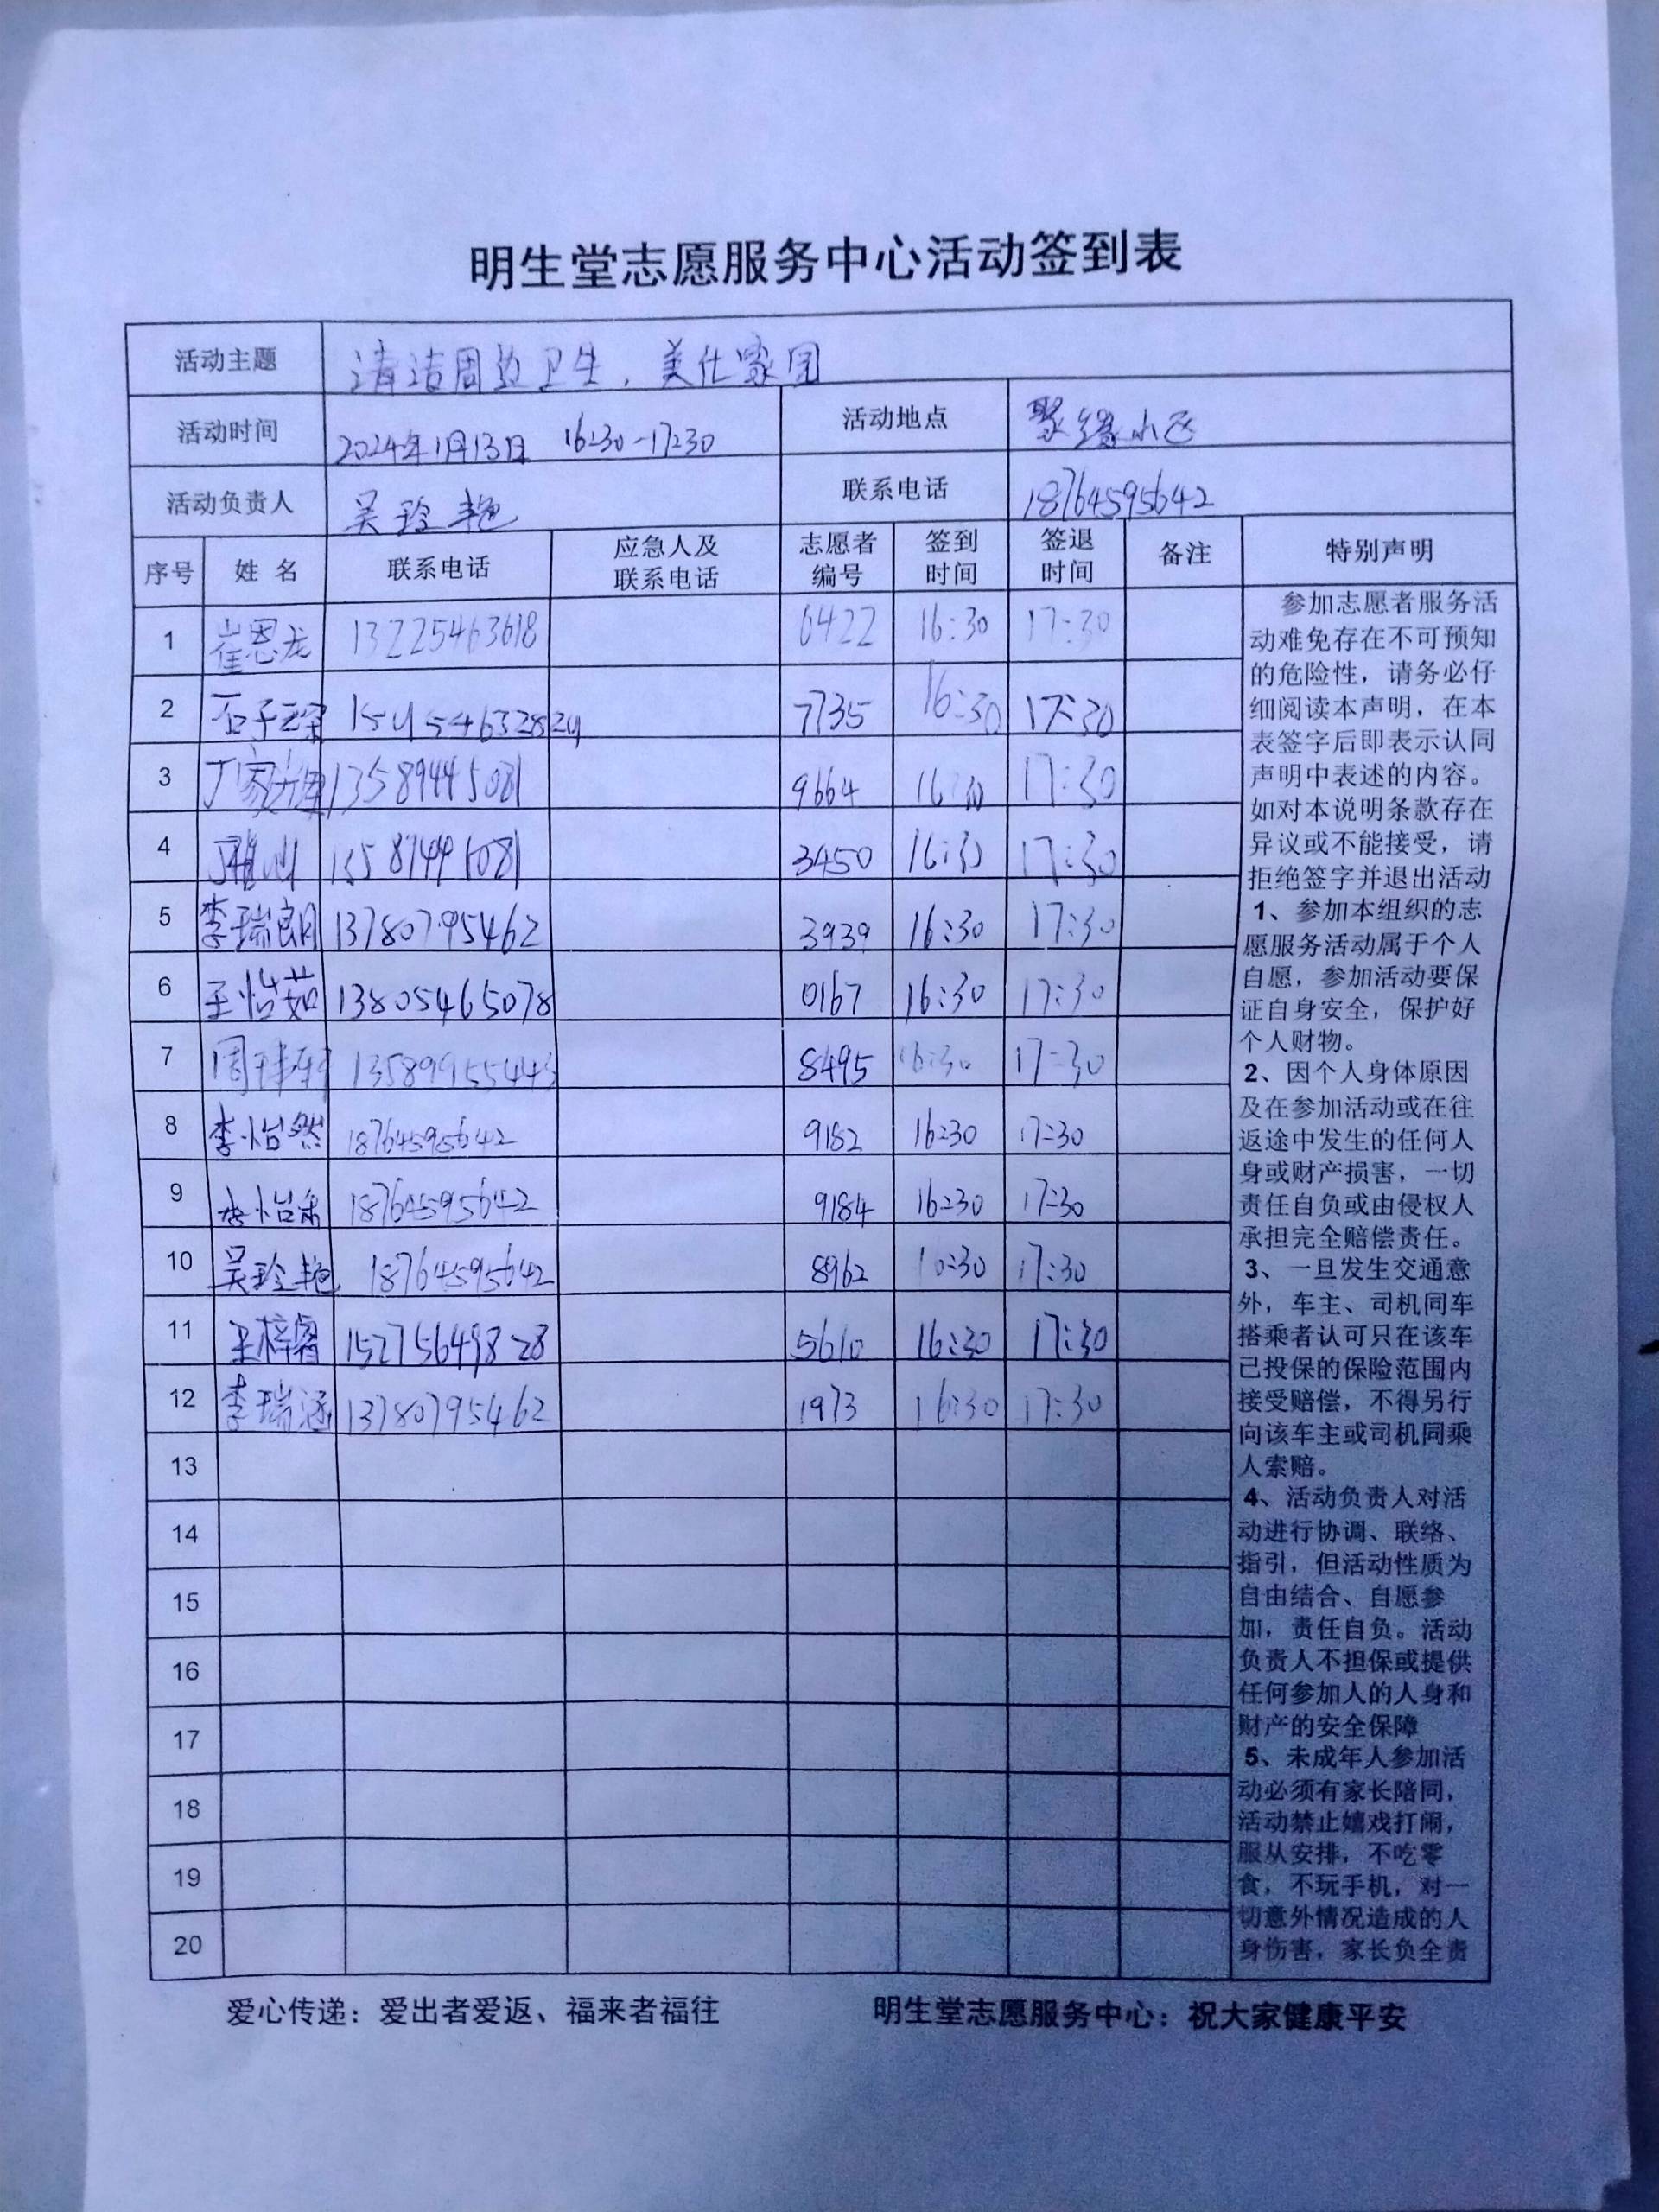 明生堂志愿服务中心活动签到表
活动主题 清洁周边卫生，美化家园
活动时间 2024年1月13日 16:30-17:30 活动地点 聚缘小区
活动负责人 吴玲艳 联系电话 18764595642
序号 姓名 联系电话 应急人及联系电话 志愿者编号 签到时间 签退时间 备注 特别声明
1 崔恩龙 13225463618 6422 16:30 17:30
2 石子 7735 16:30 17:30
3 丁家 9664 16:30 17:30
4 3450 16:30 17:30
5 李瑞朗 13780795462 3939 16:30 17:30
6 王怡茹 13805465078 0167 16:30 17:30
7 周 13589955443 8495 16:30 17:30
8 李怡然 18764595642 9182 16:30 17:30
9 李怡 18764595642 9184 16:30 17:30
10 吴玲艳 18764595642 8962 16:30 17:30
11 王梓睿 15275649828 5610 16:30 17:30
12 李瑞涵 13780795462 1973 16:30 17:30
13
14
15
16
17
18
19
20
参加志愿者服务活
动难免存在不可预知
的危险性，请务必仔
细阅读本声明，在本
表签字后即表示认同
声明中表述的内容。
如对本说明条款存在
异议或不能接受，请
拒绝签字并退出活动
1、参加本组织的志
愿服务活动属于个人
自愿，参加活动要保
证自身安全，保护好
个人财物。
2、因个人身体原因
及在参加活动或在往
返途中发生的任何人
身或财产损害，一切
责任自负或由侵权人
承担完全赔偿责任。
3、一旦发生交通意
外，车主、司机同车
搭乘者认可只在该车
已投保的保险范围内
接受赔偿，不得另行
向该车主或司机同乘
人索赔。
4、活动负责人对活
动进行协调、联络、
指引，但活动性质为
自由结合、自愿参
加，责任自负。活动
负责人不担保或提供
任何参加人的人身和
财产的安全保障
5、未成年人参加活
动必须有家长陪同，
活动禁止嬉戏打闹，
服从安排，不吃零
食，不玩手机，对一
切意外情况造成的人
身伤害，家长负全责
爱心传递：爱出者爱返、福来者福往 明生堂志愿服务中心：祝大家健康平安